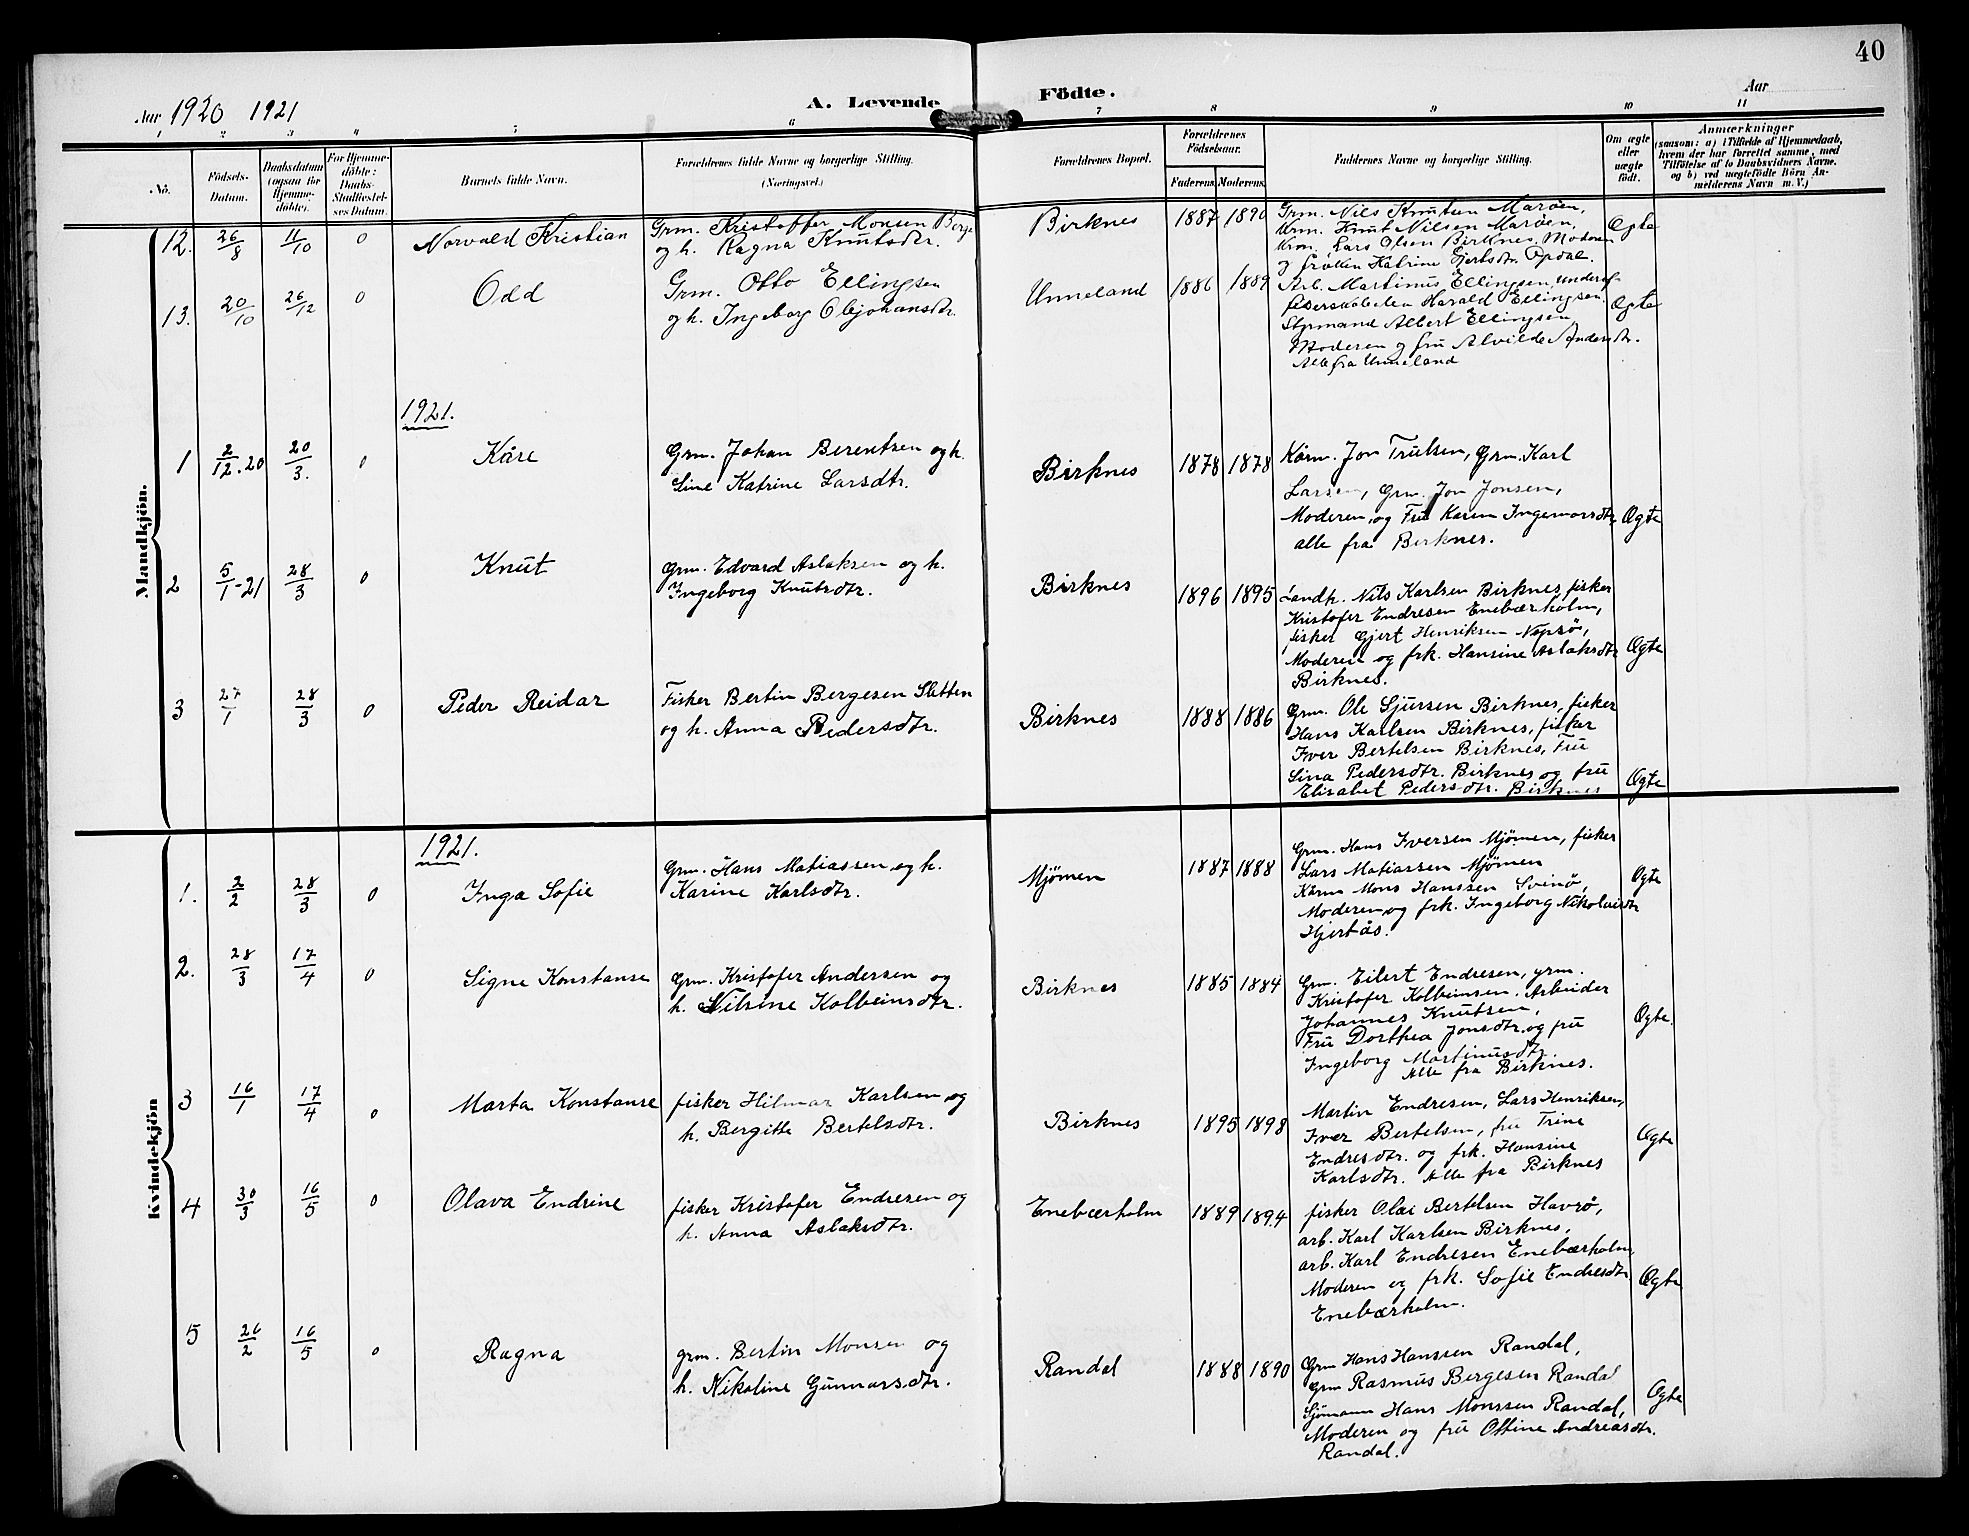 40
Aar 1920 1921
A. Levende Födte.
Aar
1 2 3 4 5 6 7 8 9 10 11
No.
Födsels-Datum.
Daabsdatum (ogsaa for Hjemme-döbte).
For Hjemme-döbte: Daabs-Stadfæstel-ses Datum.
Barnets fulde Navn.
Forældrenes fulde Navne og borgerlige Stilling. (Næringsvei.)
Forældrenes Bopæl.
Forældrenes Födselsaar.
Faderens. Moderens.
Faddernes Navne og borgerlige Stilling.
Om ægte eller uægte födt.
Anmærkninger
(saasom: a) i Tilfælde af Hjemmedaab,
hvem der har forrettet samme, med
Tilföielse af to Daabsvidners Navne.
og b) ved uægtefödte Börn An-
melderens Navn m. V.)
Mandkjön.
12. 26/8 11/10 0 Norvald Kristian
Grm. Kristoffer Monsen Berge
og h. Ragna Knutsdtr.
Birknes 1887 1890
Grm. Nils Knutsen Maröen,
Grm. Knut Nilsen Maröen,
Krm. Lars Olsen Birknes. Moderen
og fröken Katrine Gjertsdtr. Opdal.
Ægte
13. 20/10 26/12 0 Odd
Grm. Otto Ellingsen
og h. Ingeborg Olejohansdtr.
Unneland 1886 1889
Arb. Martinus Ellingsen, underof-
Harald Ellingsen.
Styrmand Albert Ellingsen
Moderen og fru Alvilde Andersdtr.
Alle fra Unneland
Ægte
1921.
1 2/12.20 20/3. 0 Kåre
Grm. Johan Berentsen og h.
Sine Katrine Larsdtr.
Birknes 1878 1878
Kårm. Jon Trulsen, Grm. Karl
Larsen, Grm. Jon Jonsen,
Moderen, og Fru Karen Ingemarsdtr
alle fra Birknes.
Ægte
2 5/1-21 28/3 0 Knut
Grm. Edvard Aslaksen og h.
Ingeborg Knutsdtr.
Birknes 1896 1895
Landh. Nils Karlsen Birknes, fisker
Kristofer Endresen Enebærholm,
fisker Gjert Henriksen Nopsö,
Moderen og frk. Hansine Aslaksdtr
Birknes.
Ægte
3 27/1 28/3 0 Peder Reidar
Fisker Bertin Bergesen Sletten
og h. Anna Pedersdtr.
Birknes 1888 1886
Grm. Ole Sjursen Birknes, fisker
Hans Karlsen Birknes, fisker
Iver Bertelsen Birknes, Fru
Sina Pedersdtr. Birknes og fru
Elisabet Pedersdtr. Birknes
Ægte
Kvindekjön
1921.
1. 2/2 28/3 0 Inga Sofie
Grm. Hans Matiassen og h.
Karine Karlsdtr.
Mjömen 1887 1888
Grm. Hans Iversen Mjömen, fisker
Lars Matiassen Mjömen
Kårm Mons Hanssen Svinö,
Moderen og frk. Ingeborg Nikolaisdtr
Hjertås.
Ægte
2. 28/3 17/4 0 Signe Konstanse
Grm. Kristofer Andersen og
h. Nilsine Kolbeinsdtr.
Birknes 1885 1884
Grm. Eilert Endresen, grm.
Kristofer Kolbeinsen. Arbeider
Johannes Knutsen,
Fru Dorthea Jonsdtr. og fru
Ingeborg Martinusdtr.
Alle fra Birknes.
Ægte.
3 16/1 17/4 0 Marta Konstanse
fisker Hilmar Karlsen og
h. Bergitte Bertelsdtr.
Birknes 1895 1898
Martin Endresen, Lars Henriksen,
Iver Bertelsen, fru Trine
Endresdtr. og frk. Hansine
Karlsdtr. Alle fra Birknes
Ægte
4 30/3 16/5 0 Olava Endrine
fisker Kristofer Endresen og
h. Anna Aslaksdtr.
Enebærholm 1889 1894
fisker Olai Bertelsen Havrö,
arb. Karl Karlsen Birknes,
arb. Karl Endresen Enebærholm,
Moderen og frk. Sofie Endresdtr
Enebærholm.
Ægte
5 26/2 16/5 0 Ragna
grm. Bertin Monsen og
h. Nikoline Gunnarsdtr.
Randal 1888 1890
Grm Hans Hanssen Randal,
grm Rasmus Bergesen Randal
Sjömann Hans Monssen Randal,
Moderen og fru Ottine Andreasdtr.
Randal.
Ægte